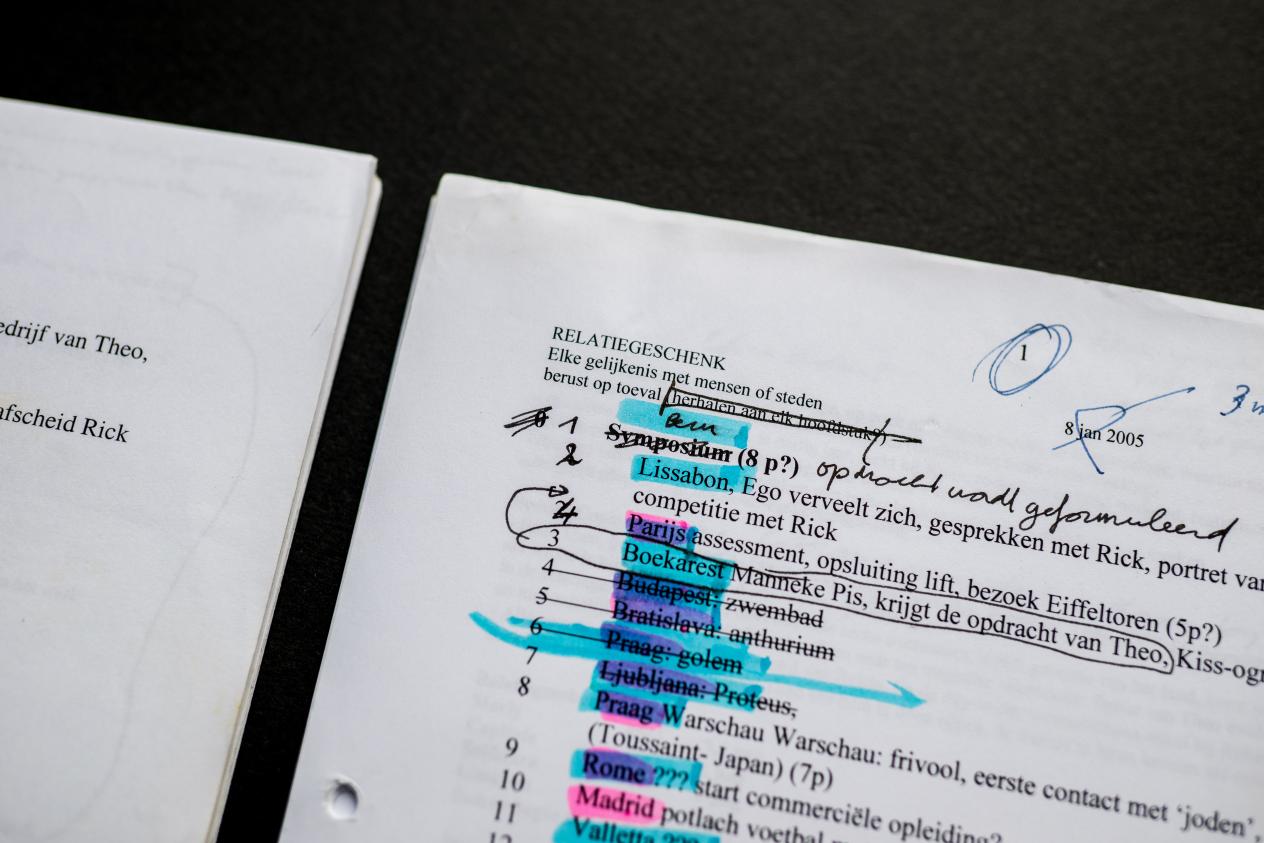 edrijf van Theo,
afscheid Rick
RELATIEGESCHENK
Elke gelijkenis met mensen of steden
berust op toeval (herhalen aan elk hoofdstuk?)
1
8 jan 2005
3
1 Symposium (8 p?) opdracht wordt geformuleerd
2 Lissabon, Ego verveelt zich, gesprekken met Rick, portret van
competitie met Rick
Parijs assessment, opsluiting lift, bezoek Eiffeltoren (5p?)
3 Boekarest Manneke Pis, krijgt de opdracht van Theo, Kiss-ogr
4 Budapest: zwembad
5 Bratislava: anthurium
6 Praag: golem
7 Ljubljana: Proteus,
8 Praag Warschau Warschau: frivool, eerste contact met ‘joden’,
(Toussaint- Japan) (7p)
9 Rome ??? start commerciële opleiding?
10 Madrid potlach voetbal
11 Valletta ???
12